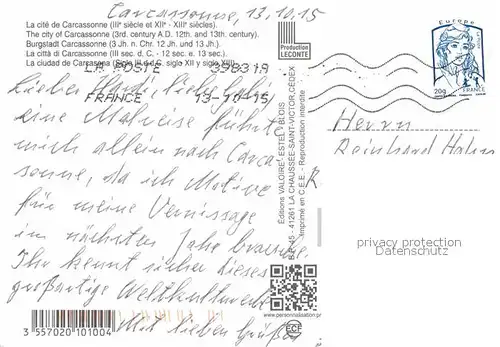 Carcassonne, 13.10.15
La cité de Carcassonne (IIIᵉ siècle et XIIᵉ - XIIIᵉ siècles).
The city of Carcassonne (3rd. century A.D. 12th. and 13th. century).
Burgstadt Carcassonne (3 Jh. n. Chr. 12 Jh. und 13 Jh.).
La città di Carcassonne (III sec. d. C. - 12 sec. e 13 sec.).
La ciudad de Carcasona (Siglo III d.C. siglo XII y siglo XIII).
LA POSTE 39831A
FRANCE 13-10-15
Production
LECONTE
Europe
20g
FRANCE
eine Malreise führte
mich allein nach Carca
sonne, da ich Motive
für meine Vernissage
im nächsten Jahr brauche.
Ihr kennt sicher dieses
großartige Weltkulturerbe
Mit lieben Grüßen
R
Herrn
Reinhard
Editions VALOIRE-ESTEL BLOIS
B.P. 45 - 41261 LA CHAUSSEE-SAINT-VICTOR CEDEX
Imprimé en C.E.E. - Reproduction interdite
privacy protection
Datenschutz
www.personnalisation.pr
3 557020 101004